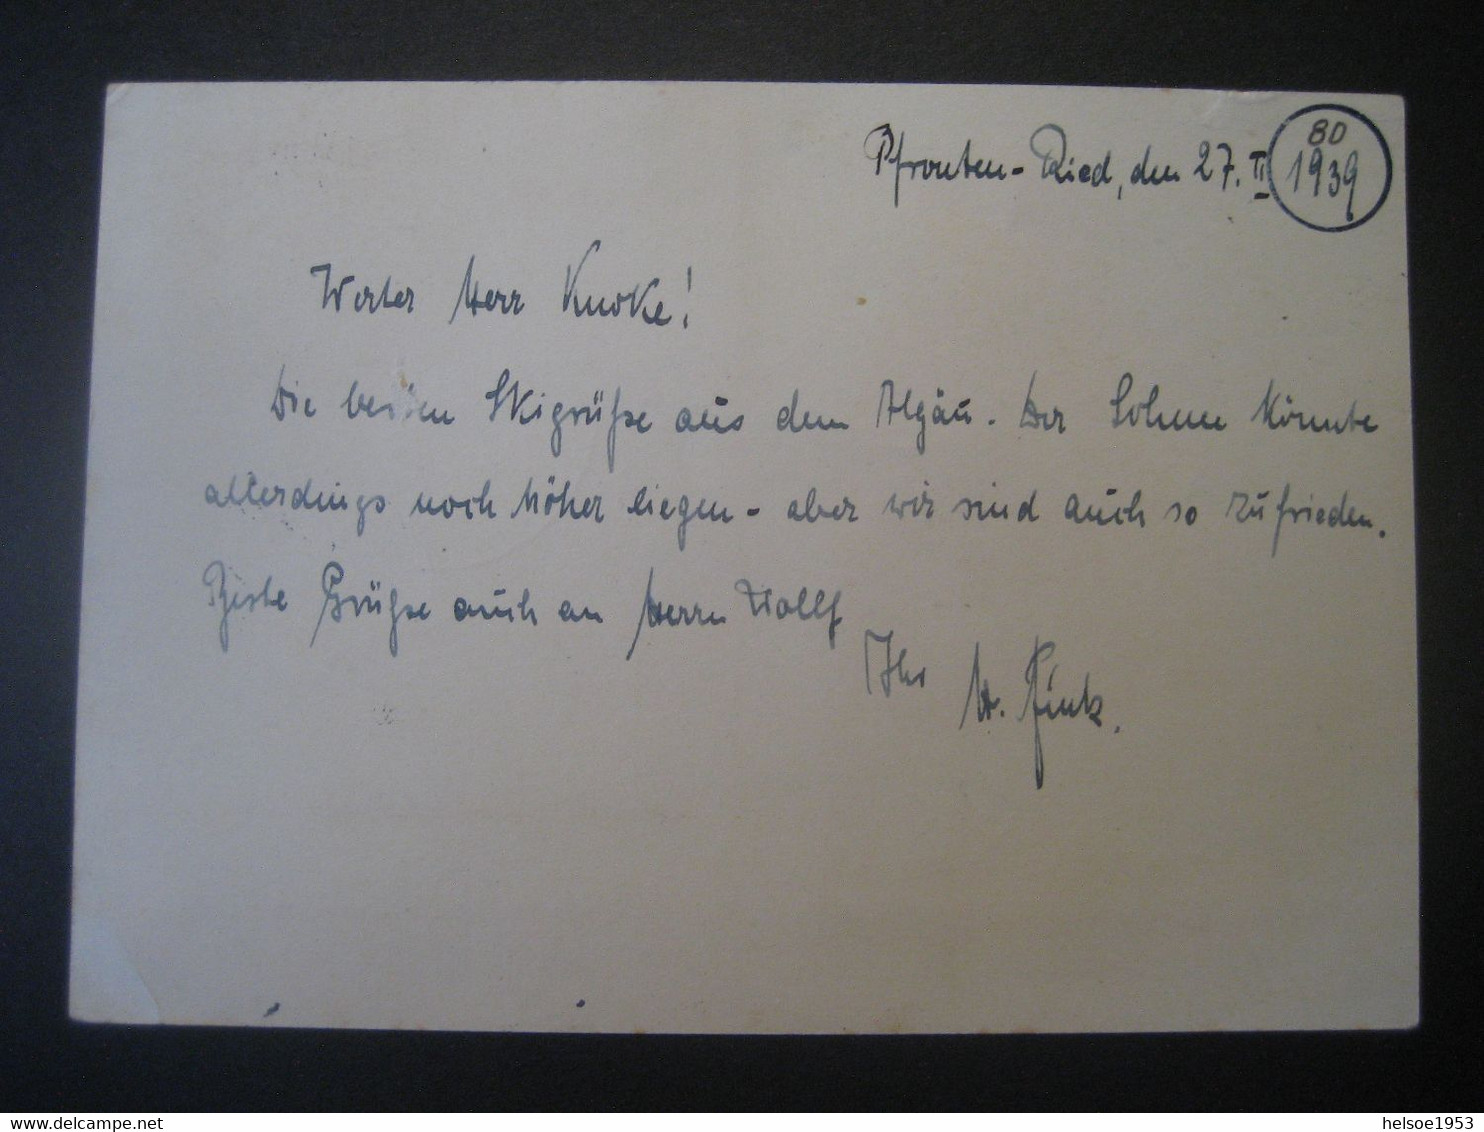 Pfronten-Ried, den 27. II 1939
BD
Werter Herr Knoke!
Die besten Skigrüße aus dem Algäu. Der Schnee könnte
allerdings noch höher liegen - aber wir sind auch so zufrieden.
Beste Grüße auch an Herrn Wolff
Ihr H.
helsoe1953
delcampe.net